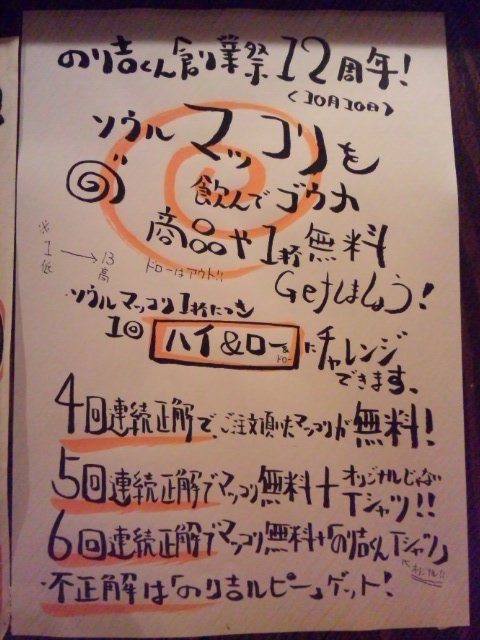 のり吉くん創業祭12周年!
<10月10日>
ソウルマッコリを
飲んでゴウカ
商品や1杯無料
Getしましょう!
※1低→13高
ドローはアウト!!
ソウルマッコリ1杯につき
1回 ハイ&ロー&ドロー にチャレンジ
できます、
4回連続正解で、ご注文頂いたマッコリが無料!
5回連続正解でマッコリ無料+オリジナルじゃない
Tシャツ!!
6回連続正解でマッコリ無料+「のり吉くんTシャツ」
不正解は「のり吉ルピー」ゲット!